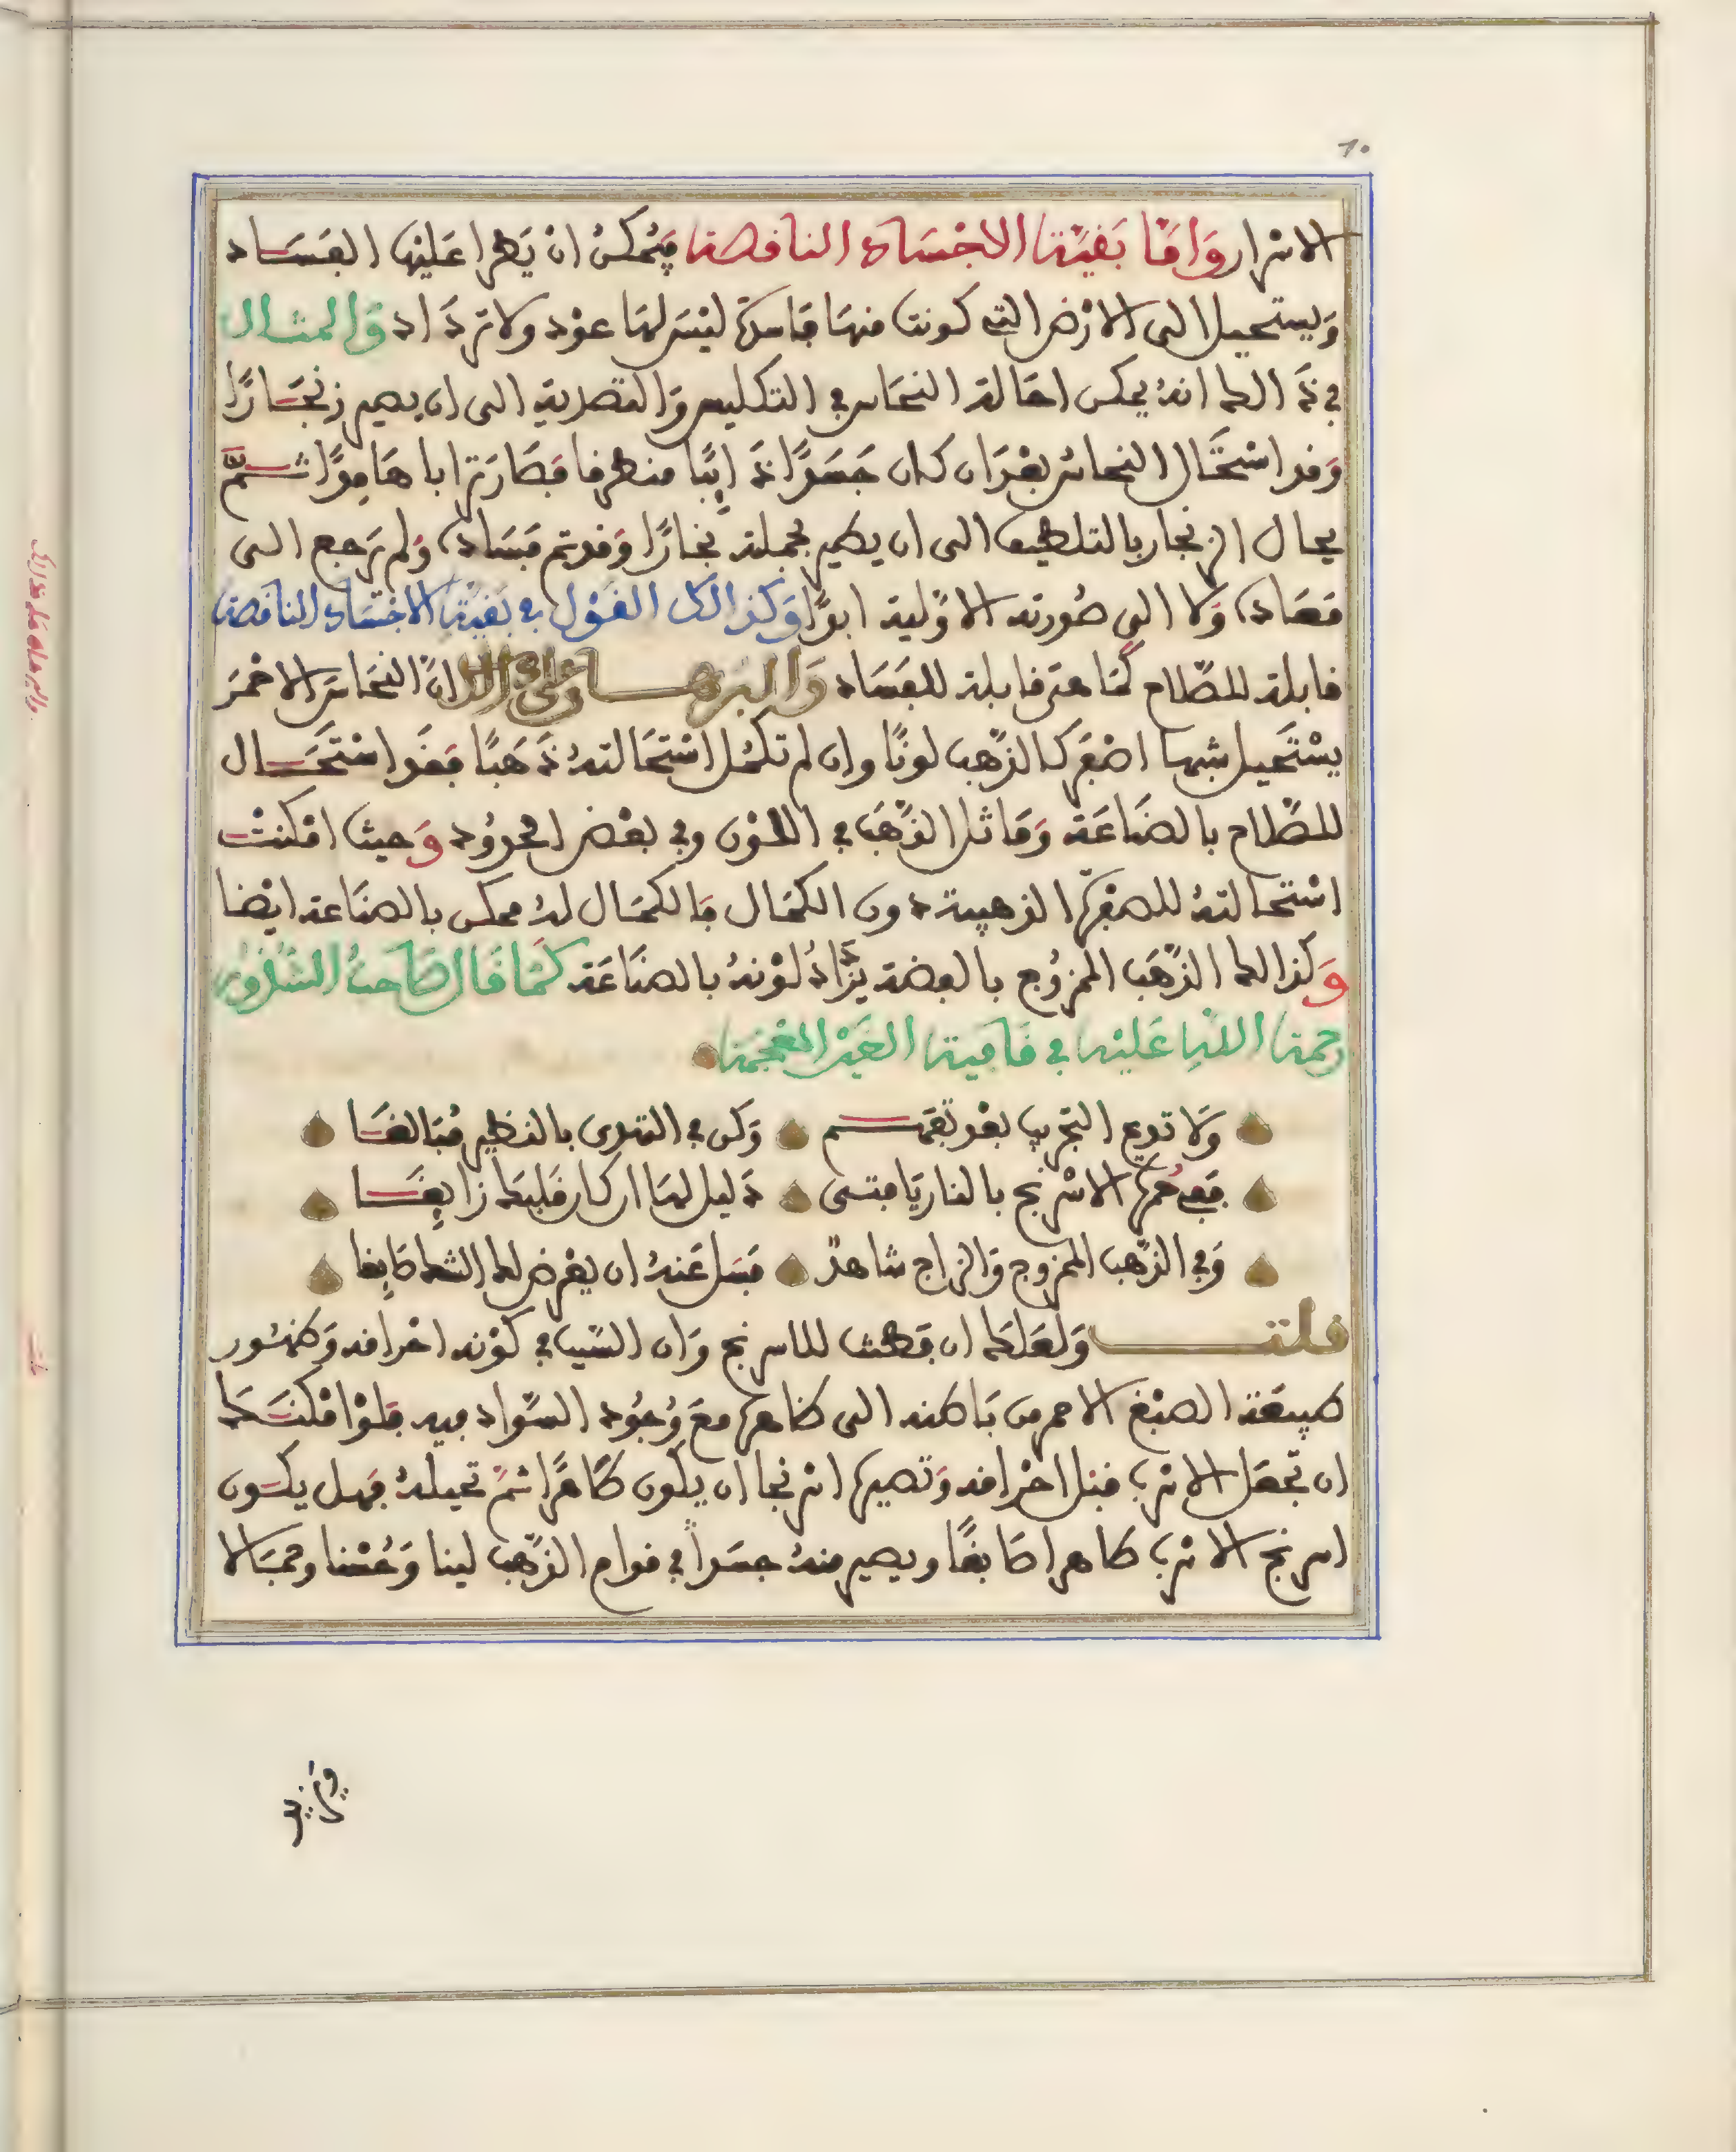 الاسرار وَامَّا بَقِيَّة الاجْسَاد الناقصة فيُمكنُ ان يَطرا عَليْهَا الفسَاد
وَيستحيل الى الارْض التي كونت منهَا فاسدة ليْسَ لهَا عوْد ولا ترداد وَالمثال
في ذَالك انهُ يمكن احَالة النحَاس في التكليس وَالتصدية الى ان يصير زنجَارًا
وَقد اسْتحَال النحاسُ بعْدَ ان كان جَسَدًا ذَائبًا منطرقا فصَارَ ترابا هَامِدًا ثمَّ
يحال الزنجار بالتلطيف الى ان يطير بجملته بخارًا وَقد تم فسَاده وَلم يَرجع الى
فضاده وَلا الى صُورته الاوّلية ابدًا وَكذالك القَوْل في بَقيّة الاجْسَاد الناقصة
قابلة للصَّلاح كمَا هيَ قابلة للفسَاد وَالبَرْهَان عَلى ذَالك انَّ النحَاسَ الاحْمَرَ
يسْتَحيل شبها اصْفَر كالذّهب لونًا وان لم تكمُل اسْتحَالتهُ ذَهَبًا فقَد اسْتَحَال
للصَّلاح بالصنَاعَة وَمَاثل الذّهَب في اللوْن وفي بعْض الحدوُد وَحيث امْكنتْ
اسْتحالتهُ للصفرَة الذهبية دون الكمَال فالكمَال لهُ ممكن بالصنَاعة ايْضا
وَكذالك الذّهَب الممزوُج بالفضة يزَّادُ لوْنهُ بالصنَاعَة كمَا قَال صَاحبُ الشذُور
رحمة اللهِ عَليْه في قَافية الغيْن المعْجَمَة
وَلا تدع التجريب بعد تفهم وَكن في التهدى بالنظير مُبَالغَا
فَفي حُمرة الاسْرنج بالنار يَا فتى دَليل لهَا ان كان قلبك زايغَا
وَفي الذّهب الممزوج وَالزاج شاهدٌ فسَل عَنهُ ان يعْرض لك الشك صَابغا
قلت وَلعَلك ان فطنت للاسرنج وَان السّبب في كوْنه احْرَاقه وَظهُور
طبيعَة الصبْغ الاحمر من بَاطنه الى ظاهره معَ وُجوُد السّواد فيه فلوْ امْكنَك
ان تجعَل الاسْرب قبْل احْرَاقه وَتصييره اسْرنجا ان يكون طَاهرًا ثمّ تحيلهُ فهل يكون
اسرنج الاسْرب طاهرا صَابغًا ويصير منهُ جسَدًا في قوام الذّهب لينا وَحُسْنا وجمَالا